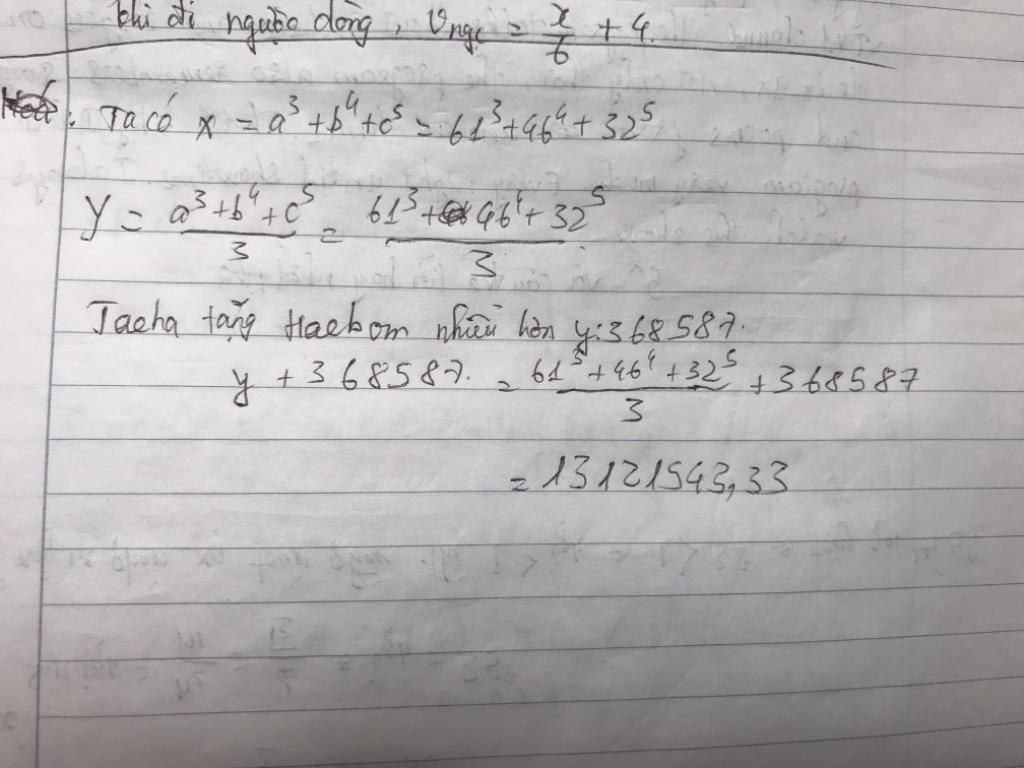 khi đi ngược dòng, Vngc = x/6 + 4.
Ta có x = a³ + b⁴ + c⁵ = 61³ + 46⁴ + 32⁵
Y = (a³ + b⁴ + c⁵)/3 = (61³ + 46⁴ + 32⁵)/3
Jaeha tặng Haebom nhiều hơn y: 368587.
y + 368587. = (61³ + 46⁴ + 32⁵)/3 + 368587
= 13121543,33